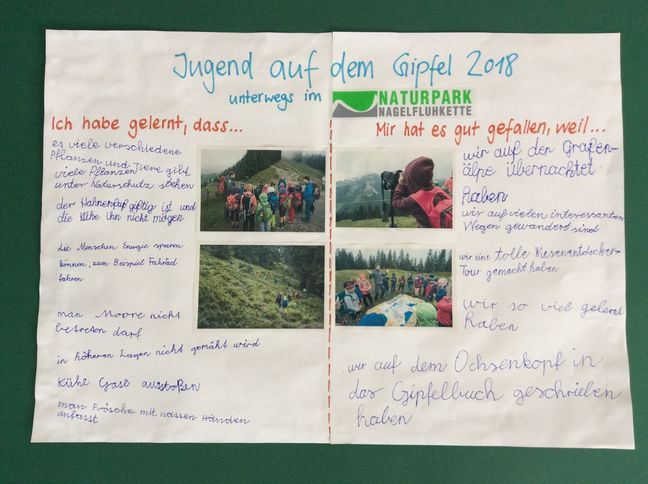 Jugend auf dem Gipfel 2018
unterwegs im NATURPARK
NAGELFLUHKETTE
Ich habe gelernt, dass...
es viele verschiedene
Pflanzen und Tiere gibt
viele Pflanzen
unter Naturschutz stehen
der Hahnenfuß giftig ist und
die Kühe ihn nicht mögen
die Menschen Energie sparen
können, zum Beispiel Fahrad
fahren
man Moore nicht
betreten darf
in höheren Lagen nicht gemäht wird
Kühe Gase ausstoßen
man Frösche mit nassen Händen
anfasst
Mir hat es gut gefallen, weil...
wir auf der Grafen-
älpe übernachtet
haben
wir auf vielen interessanten
Wegen gewandert sind
wir eine tolle Wiesenentdecker-
Tour gemacht haben
wir so viel gelernt
haben
wir auf dem Ochsenkopf in
das Gipfelbuch geschrieben
haben